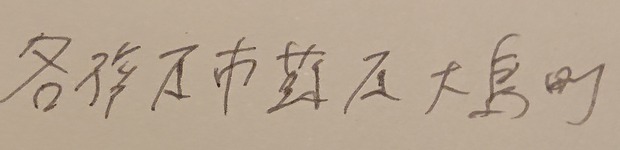 各務原市蘇原大島町